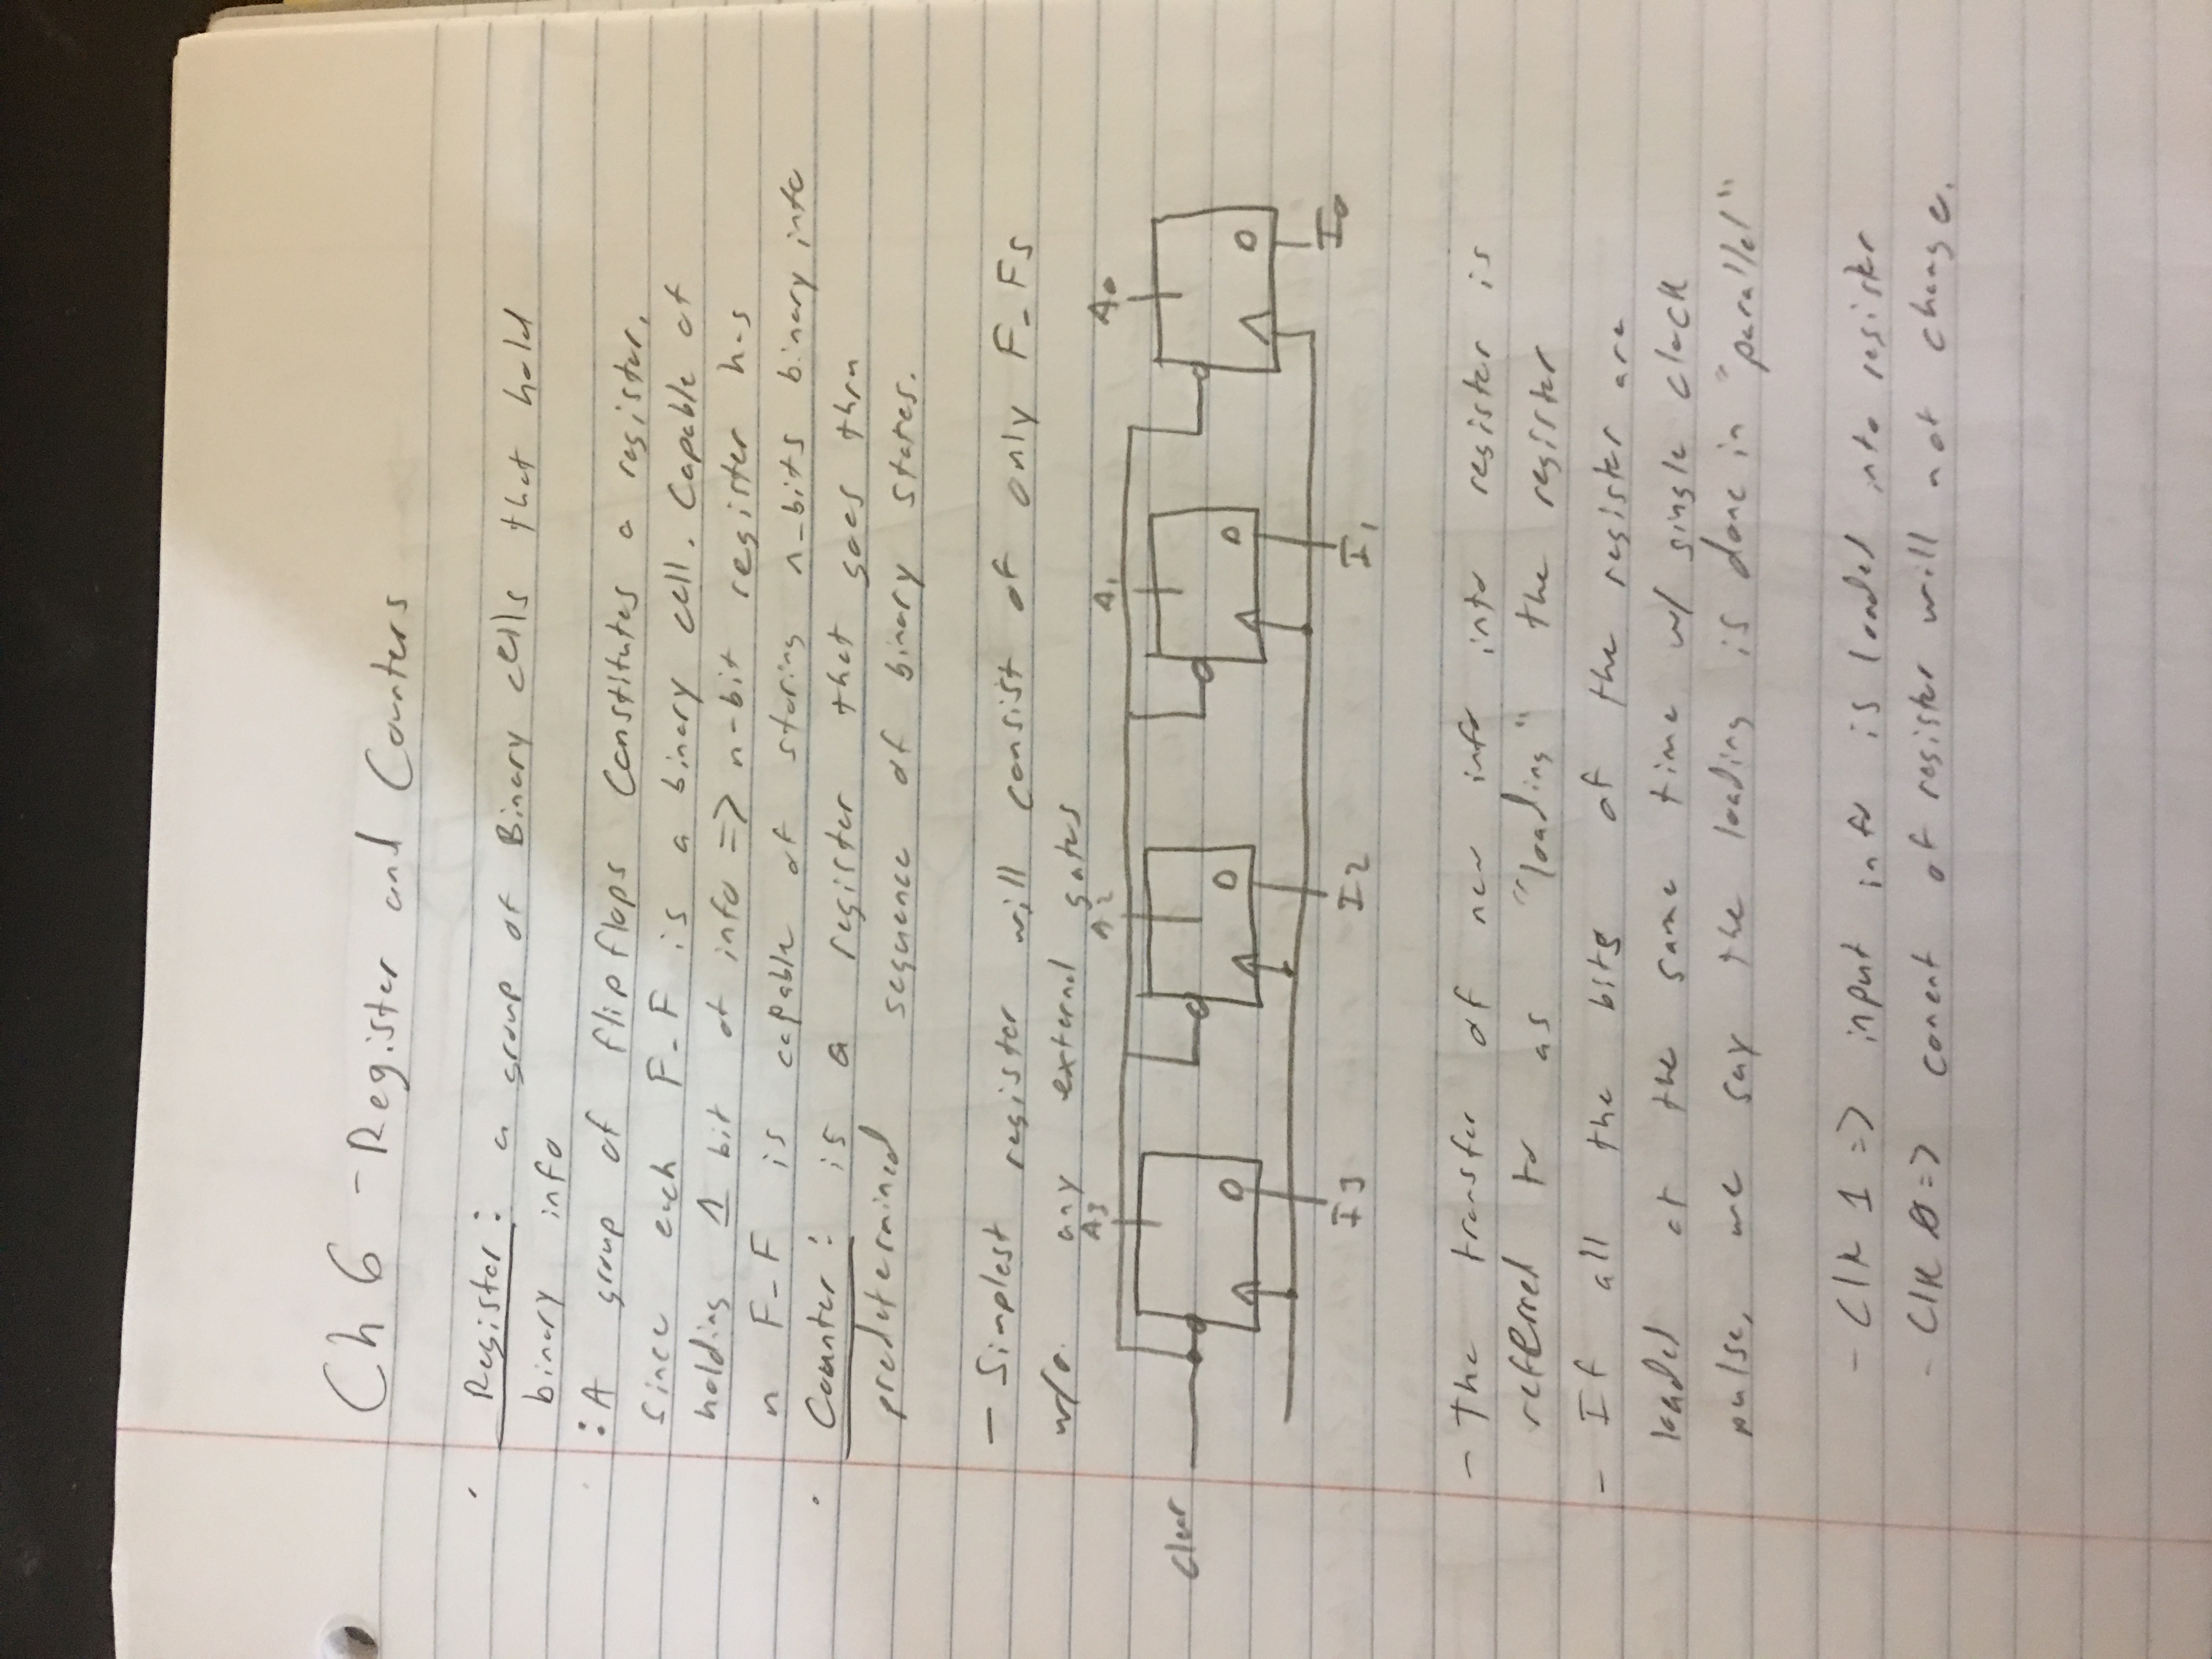 Ch 6 - Register and Counters
Register: a group of Binary cells that hold
binary info
: A group of flipflops constitutes a register,
since each F-F is a binary cell. Capable of
holding 1 bit of info => n-bit register has
n F-F is capable of storing n-bits binary info
Counter: is a register that goes thru
predetermined sequence of binary states.
- Simplest register will consist of only F-Fs
w/o any external gates
A3 A2 A1 A0
Clear
D D D D
I3 I2 I1 I0
- The transfer of new info into register is
referred to as "loading" the register
- If all the bits of the register are
loaded at the same time w/ single clock
pulse, we say the loading is done in "parallel"
- Clk 1 => input info is loaded into register
- Clk 0 => conent of register will not change.